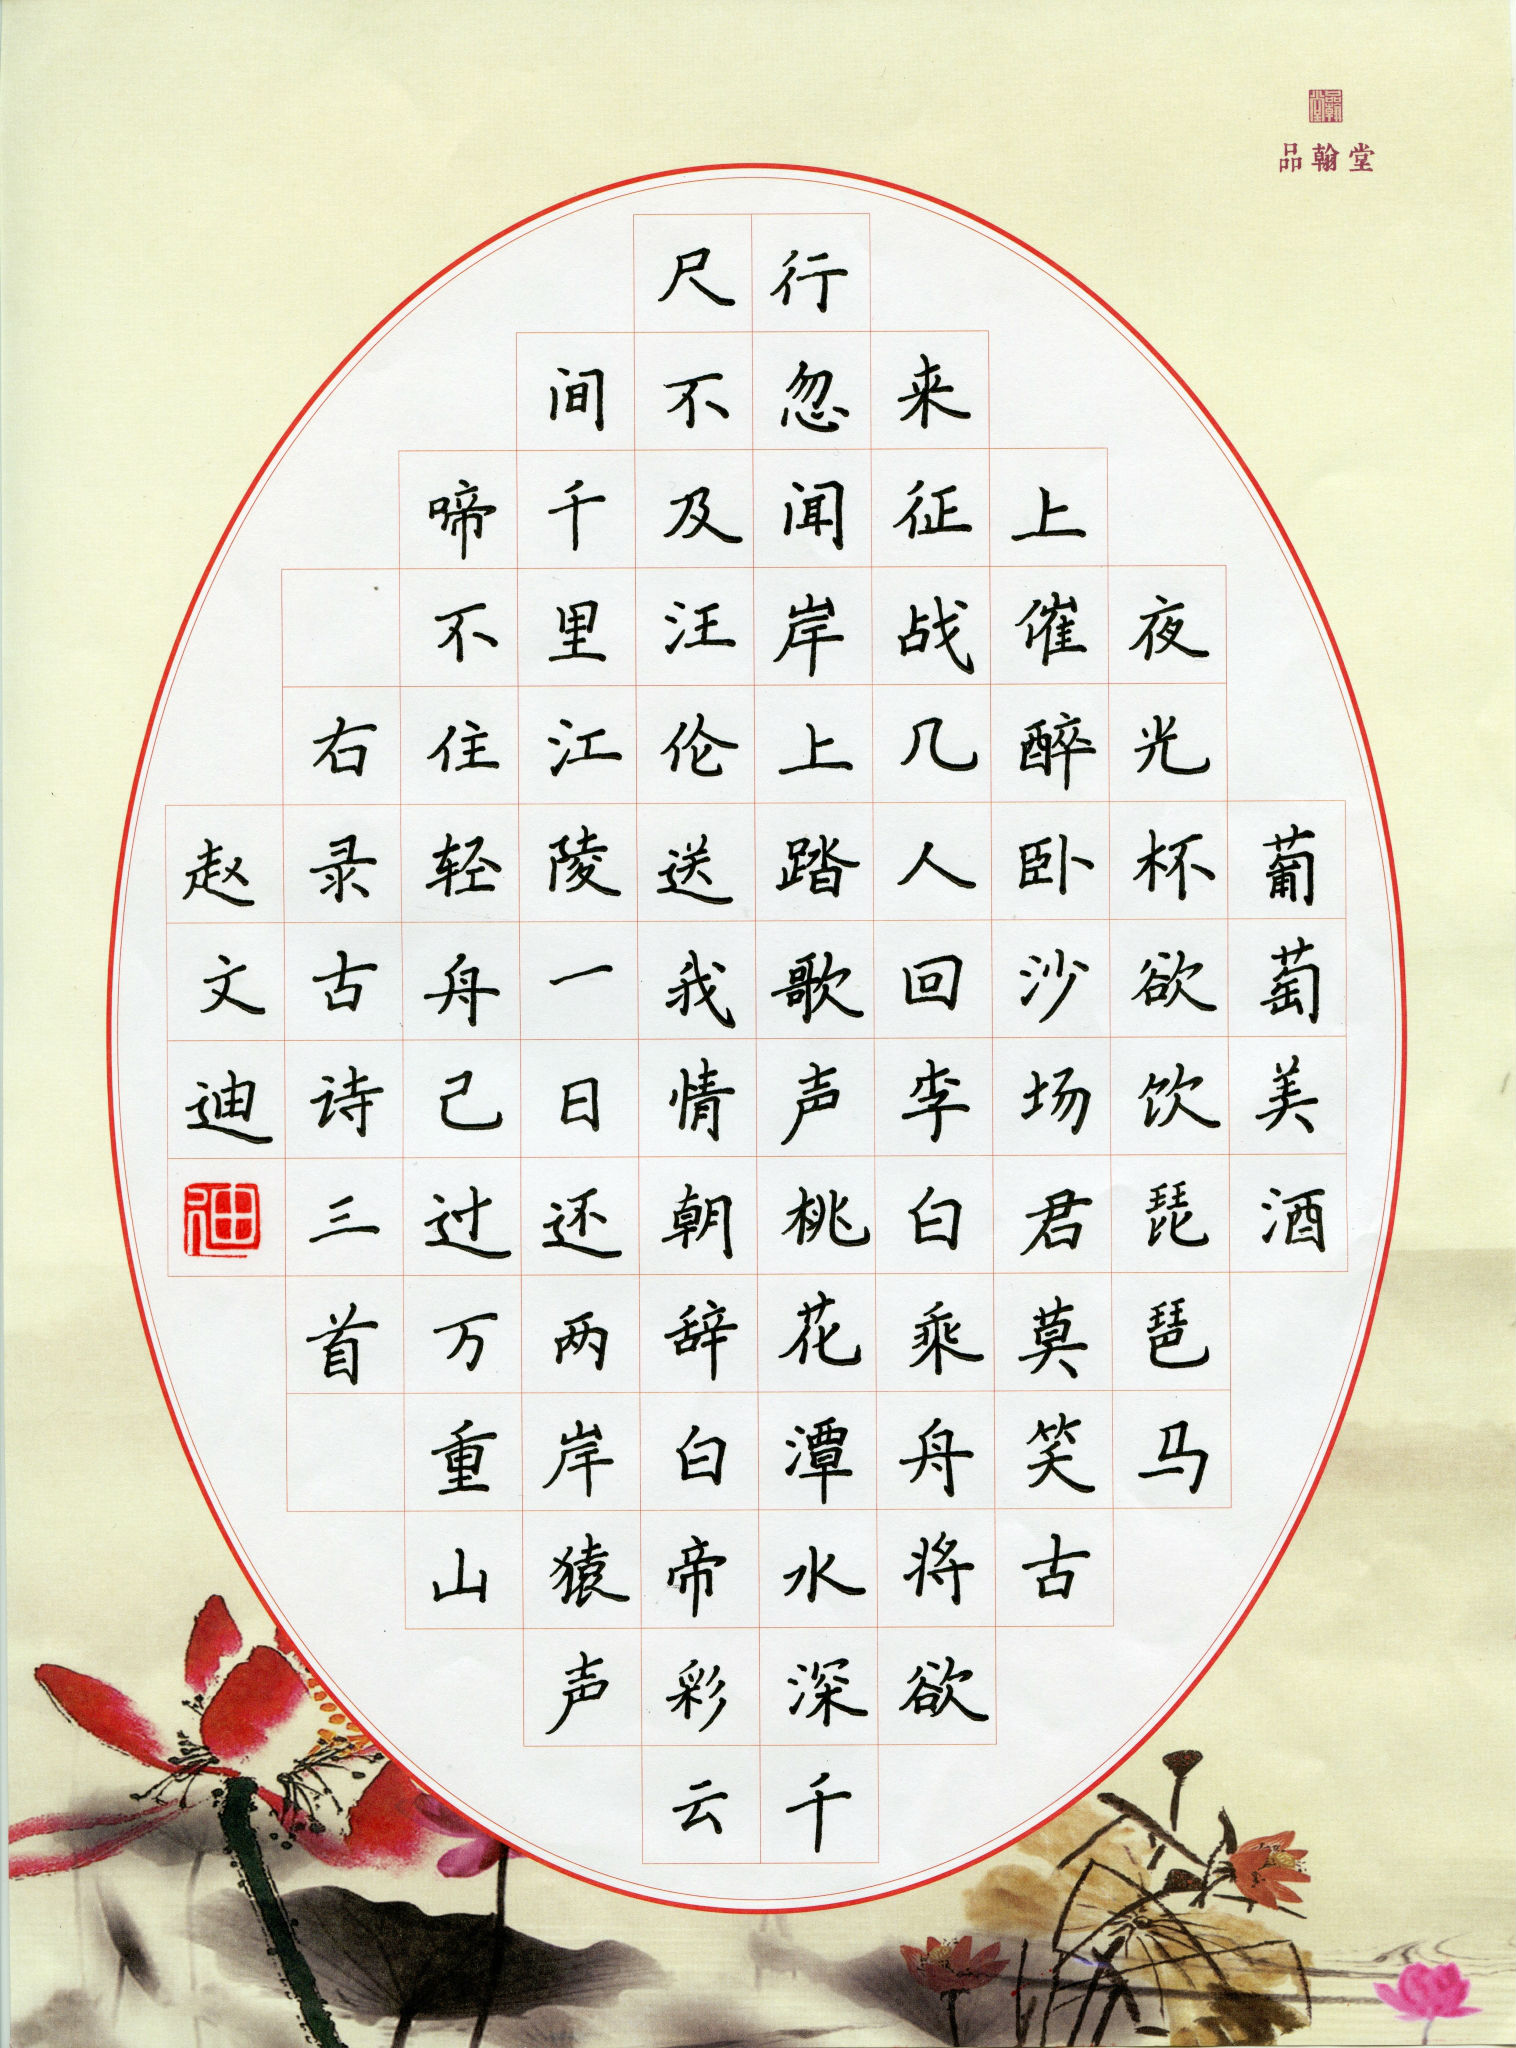 品翰堂
葡萄美酒
夜光杯欲饮琵琶马
上催醉卧沙场君莫笑古
来征战几人回李白乘舟将欲
行忽闻岸上踏歌声桃花潭水深千
尺不及汪伦送我情朝辞白帝彩云
间千里江陵一日还两岸猿声
啼不住轻舟己过万重山
右录古诗三首
赵文迪
迪